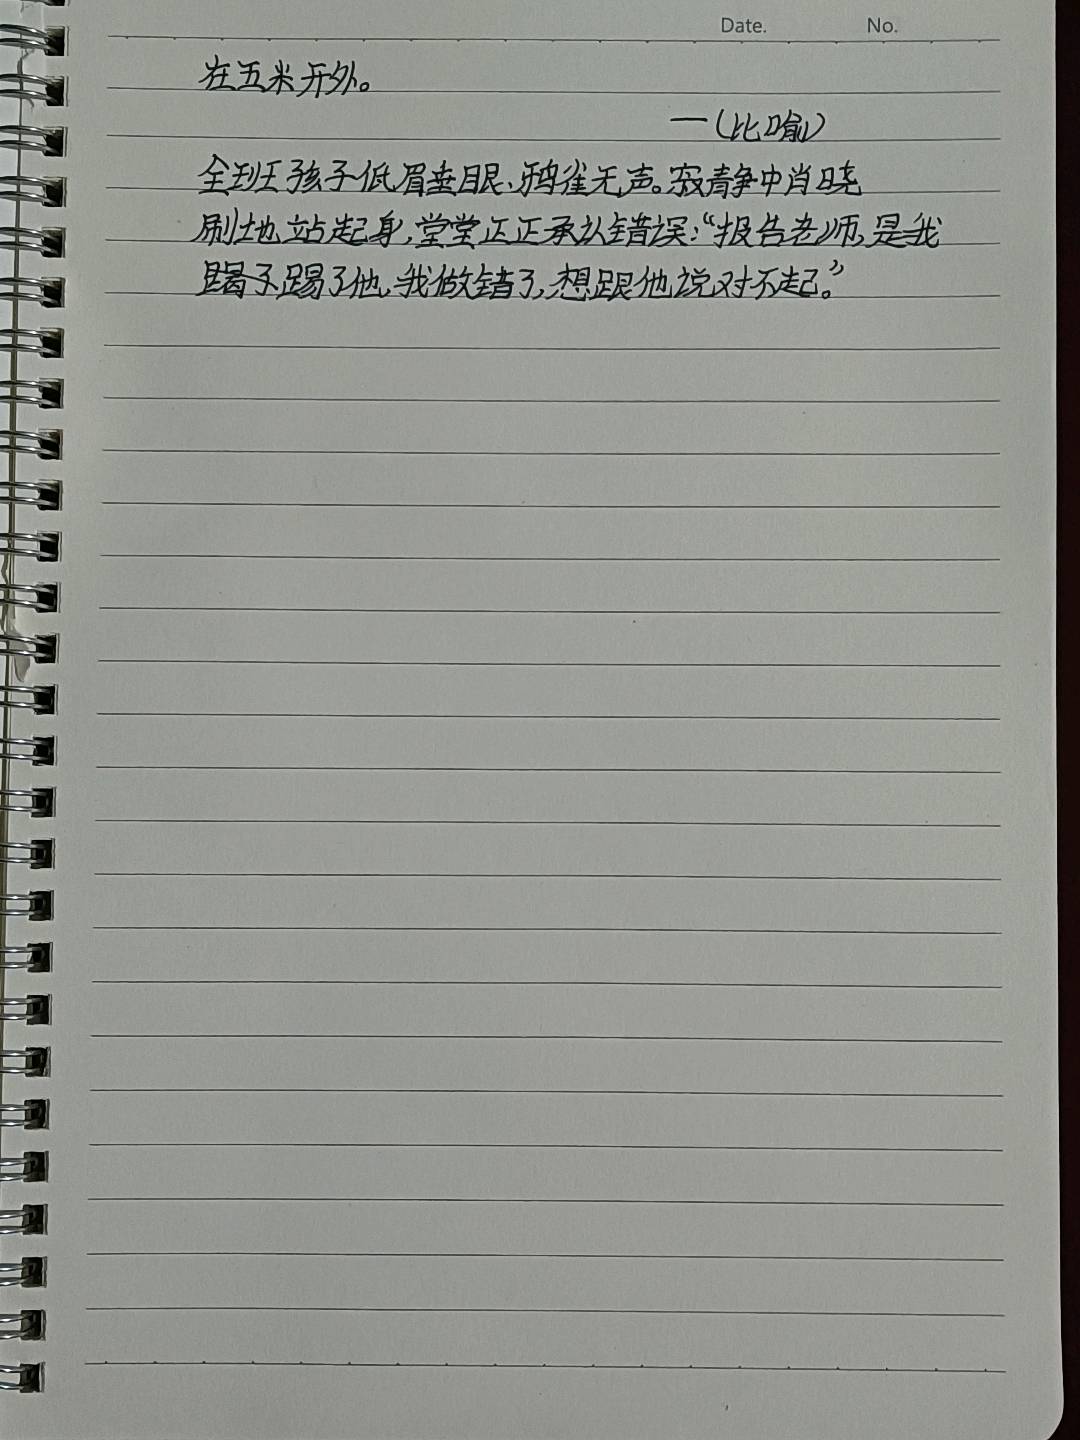 Date. No.
在五米开外。
—(比喻)
全班孩子低眉垂眼、鸦雀无声。寂静中肖晓
刷地站起身,堂堂正正承认错误:“报告老师,是我
踢了他,我做错了,想跟他说对不起。”